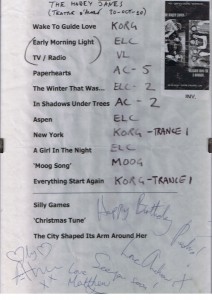 THE HONEY JANES
Wake To Guide Love KORG
Early Morning Light ELC
TV / Radio VL
Paperhearts AC-5
The Winter That Was... ELC-2
In Shadows Under Trees AC-2
Aspen ELC
New York KORG-TRANCE 1
A Girl In The Night ELC
'Moog Song' MOOG
Everything Start Again KORG-TRANCE 1
Silly Games
'Christmas Tune'
The City Shaped Its Arm Around Her
Happy Birthday
Matthew